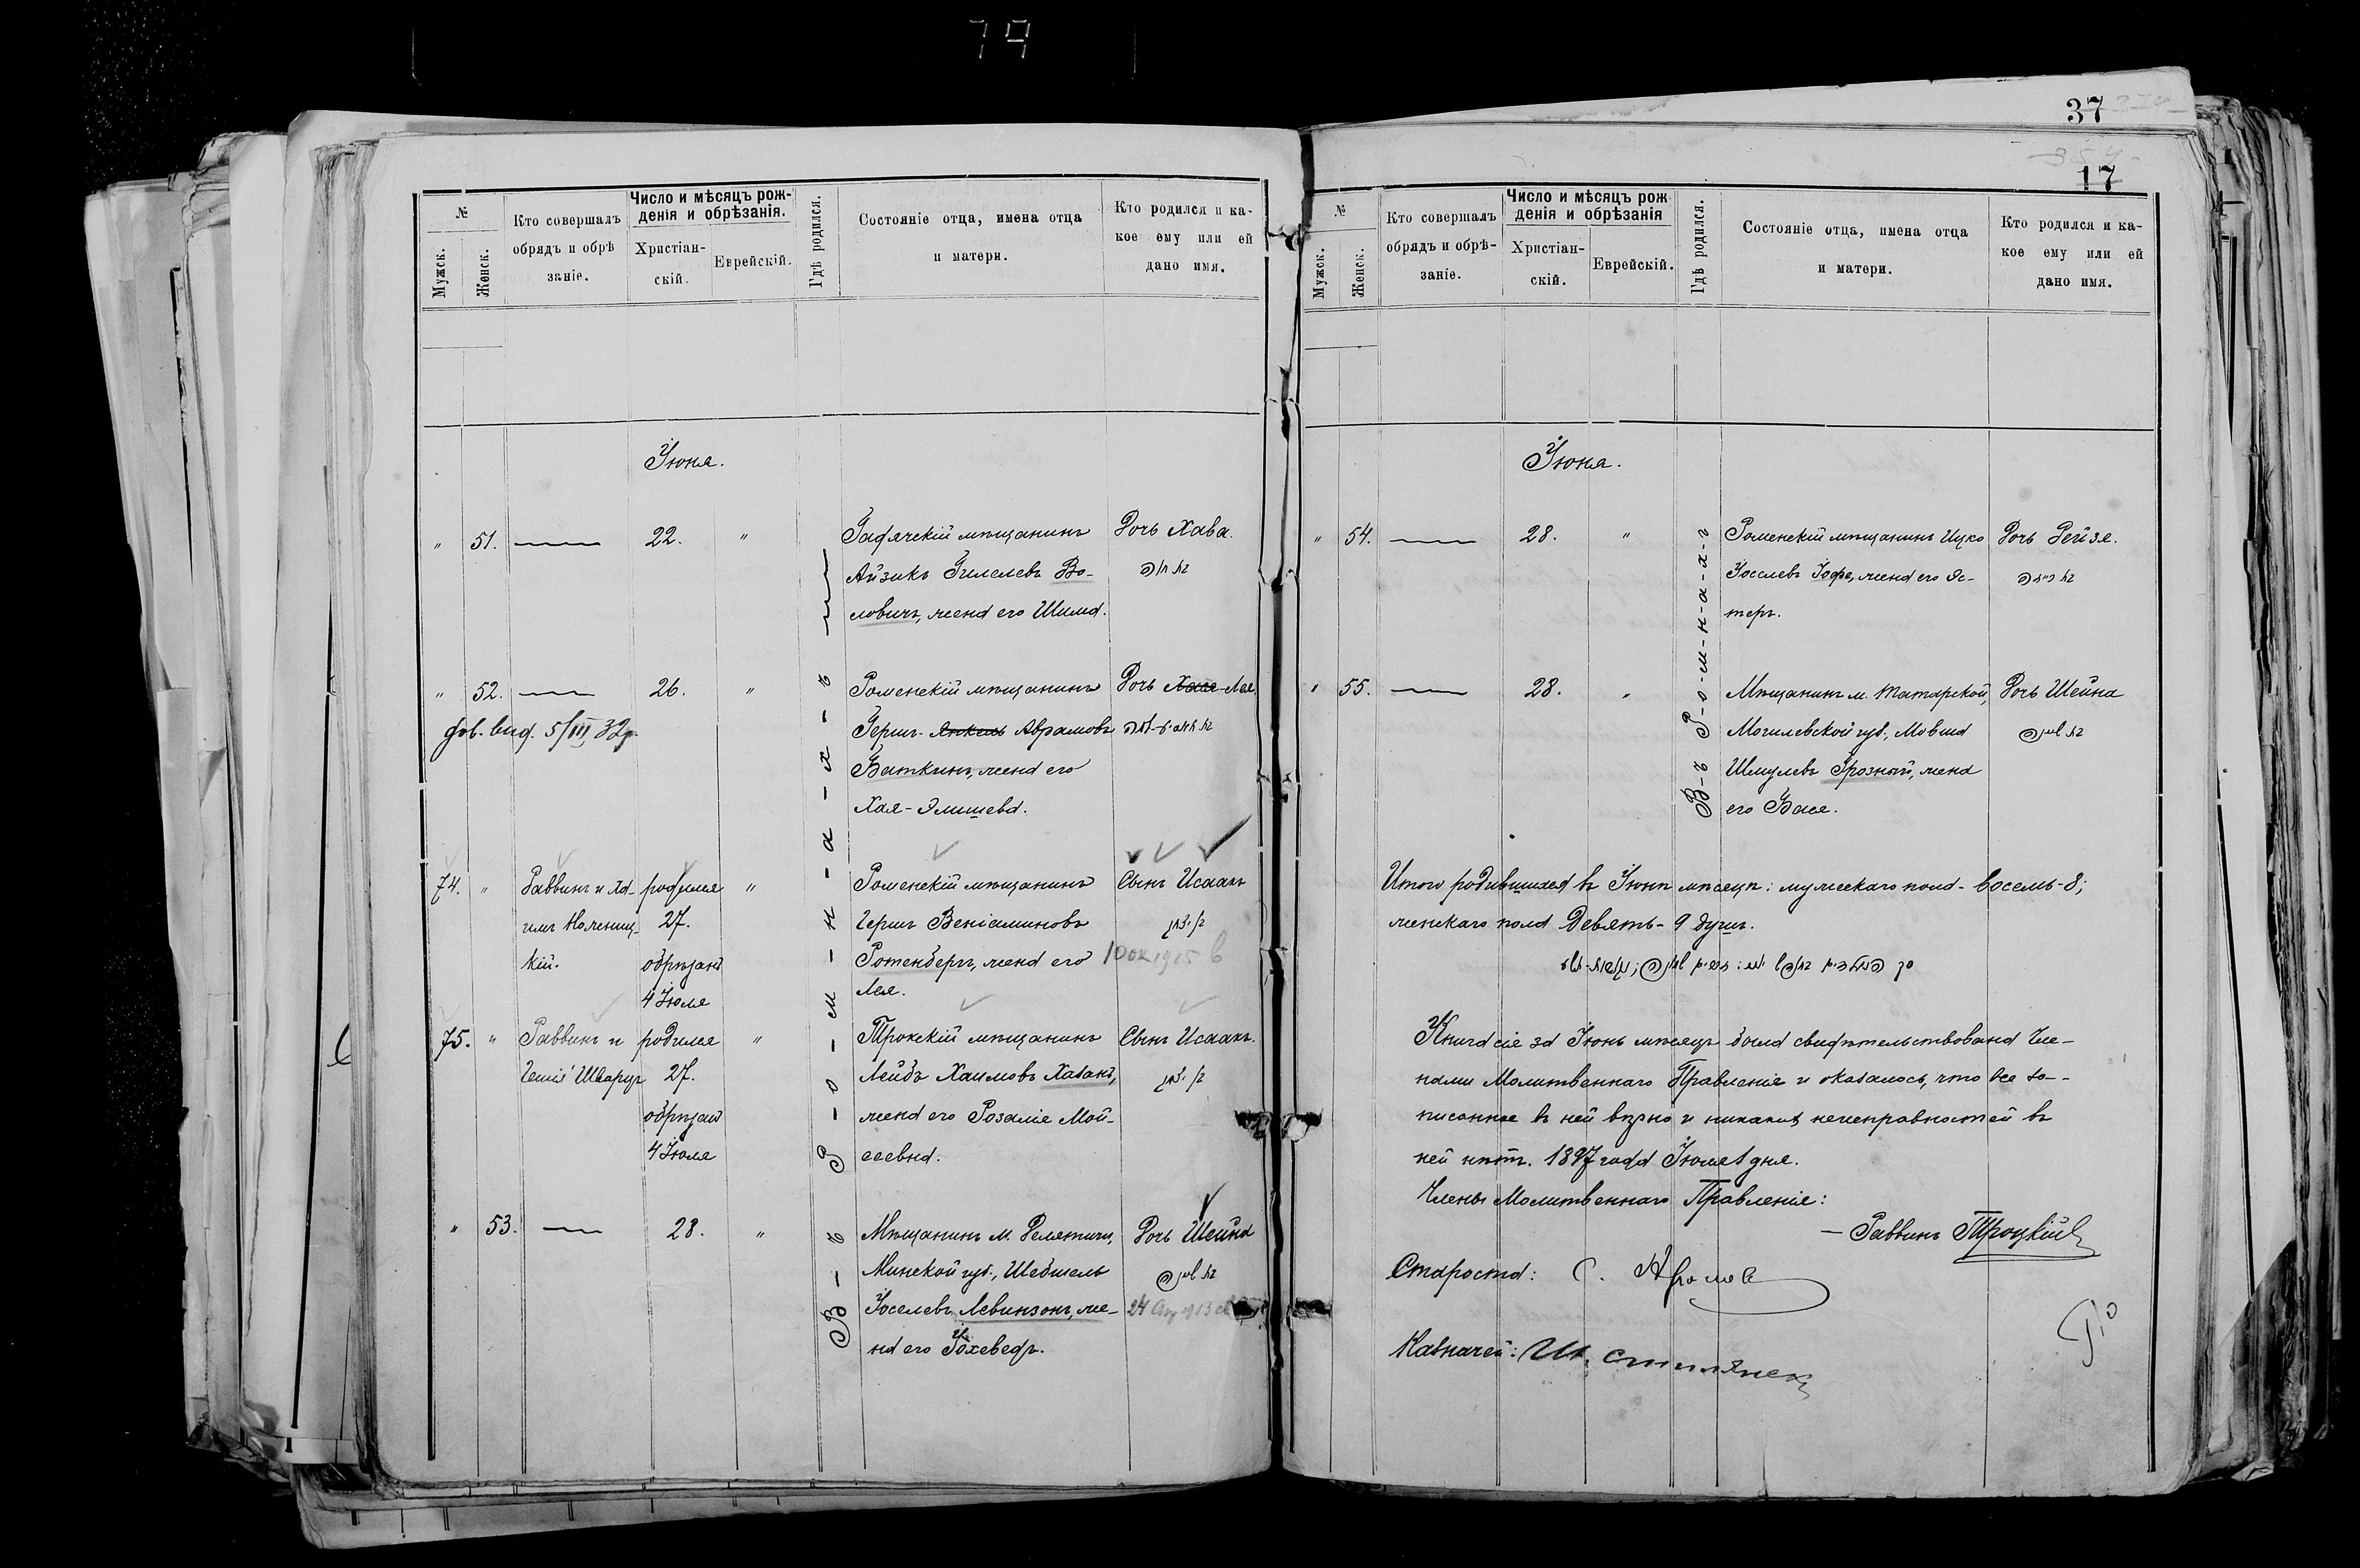 79
37
17
№
Мужск.
Женск.
Кто совершалъ
обрядъ и обрѣ
заніе.
Число и мѣсяцъ рож-
денія и обрѣзанія.
Христіан-
скій.
Еврейскій.
Гдѣ родился.
Состояніе отца, имена отца
и матери.
Кто родился и ка-
кое ему или ей
дано имя.
Іюня.
" 51. — 22. "
Гадячскій мѣщанинъ
Айзикъ Гилелевъ Во-
ловичъ, жена его Шима.
Дочь Хава.
בת חוה
" 52. — 26. "
дов. выд. 5/III 32 р.
Роменскій мѣщанинъ
Гершъ-Янкель Аврамовъ
Баткинъ, жена его
Хая-Элишева.
Дочь Хася-Лея.
74. "
Раввинъ и Ха-
кій.
родился
27.
обрѣзанъ
4 Іюля
"
Роменскій мѣщанинъ
Гершъ Веніаминовъ
Ротенбергъ, жена его
Лея.
Сынъ Исаакъ
בן יצחק
75. "
Раввинъ и
Шварцъ
родился
27.
обрѣзанъ
4 Іюля
"
Трокскій мѣщанинъ
Лейба Хаимовъ Хазанъ,
жена его Розалія Мой-
сеевна.
Сынъ Исаакъ.
בן יצחק
" 53. — 28. "
Мѣщанинъ м. Делятичи,
Минской губ., Шебшель
Іоселевъ Левинзонъ, же-
на его Іохеведъ.
Дочь Шейна
בת שיינה
В-ъ Р-о-м-н-а-х-ъ
№
Мужск.
Женск.
Кто совершалъ
обрядъ и обрѣ-
заніе.
Число и мѣсяцъ рож
денія и обрѣзанія
Христіан-
скій.
Еврейскій.
Гдѣ родился.
Состояніе отца, имена отца
и матери.
Кто родился и ка-
кое ему или ей
дано имя.
Іюня.
" 54. — 28. "
Роменскій мѣщанинъ Ицко
Іоселевъ Іофе, жена его Эс-
теръ.
Дочь Рейзя.
בת רייזה
" 55. — 28. "
Мѣщанинъ м. Татарской,
Могилевской губ., Мовша
Шмулевъ Грозный, жена
его Бася.
Дочь Шейна
בת שיינה
В-ъ Р-о-м-н-а-х-ъ
Итого родившихся въ Іюнѣ мѣсяцѣ: мужескаго пола - восемь - 8;
женскаго пола Девять - 9 душъ.
Книга сія за Іюнь мѣсяцъ была свидѣтельствована Чле-
нами Молитвеннаго Правленія и оказалось, что все за-
писанное въ ней вѣрно и никакихъ неисправностей въ
ней нѣтъ. 1897 года Іюля 1 дня.
Члены Молитвеннаго Правленія:
— Раввинъ Троцкій
Староста:
Казначей: